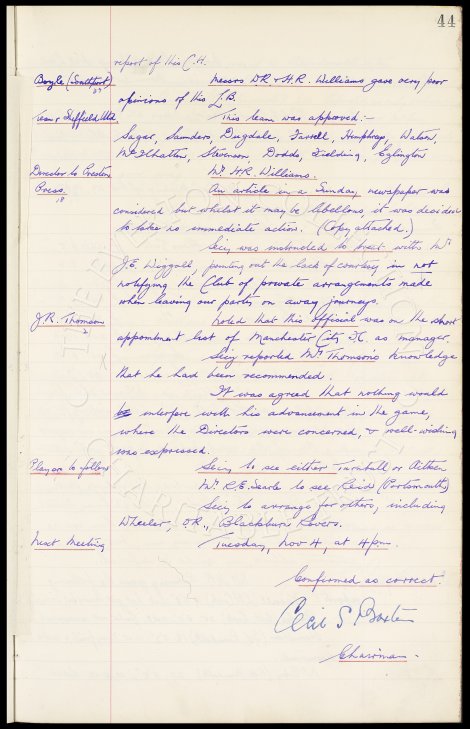 44
report of this C.H.
Boyle (Southport) Messrs D.R & H.R. Williams gave very poor
27
opinions of this L.B.
Team v Sheffield Utd. This team was approved:-
Sagar, Saunders, Dugdale, Farrell, Humphreys, Watson,
McIlhatton, Stevenson, Dodds, Fielding, Eglington
Director to Preston Mr H.R. Williams.
Press. An article in a Sunday, newspaper was
18
considered but whilst it may be libellous, it was decided
to take no immediate action. (Copy attached.)
Secy was instructed to treat with Mr
J.E. Wiggall, pointing out the lack of courtesy in not
notifying the Club of private arrangements made
when leaving our party on away journeys.
J.R. Thomson Noted that this official was on the short
2
appointment list of Manchester City FC. as manager.
Secy reported Mr Thomson's knowledge
that he had been recommended.
It was agreed that nothing would
be interfere with his advancement in the game,
where the Directors were concerned, & well-wishing
was expressed.
Players to follow Secy to see either Turnbull or Aitken
Mr. R.E. Searle to see Reid (Portsmouth)
Secy to arrange for others, including
Wheeler, OR., Blackburn Rovers.
Next Meeting Tuesday, Nov 4, at 4pm.
Confirmed as correct.
Cecil S Baxter
Chairman.